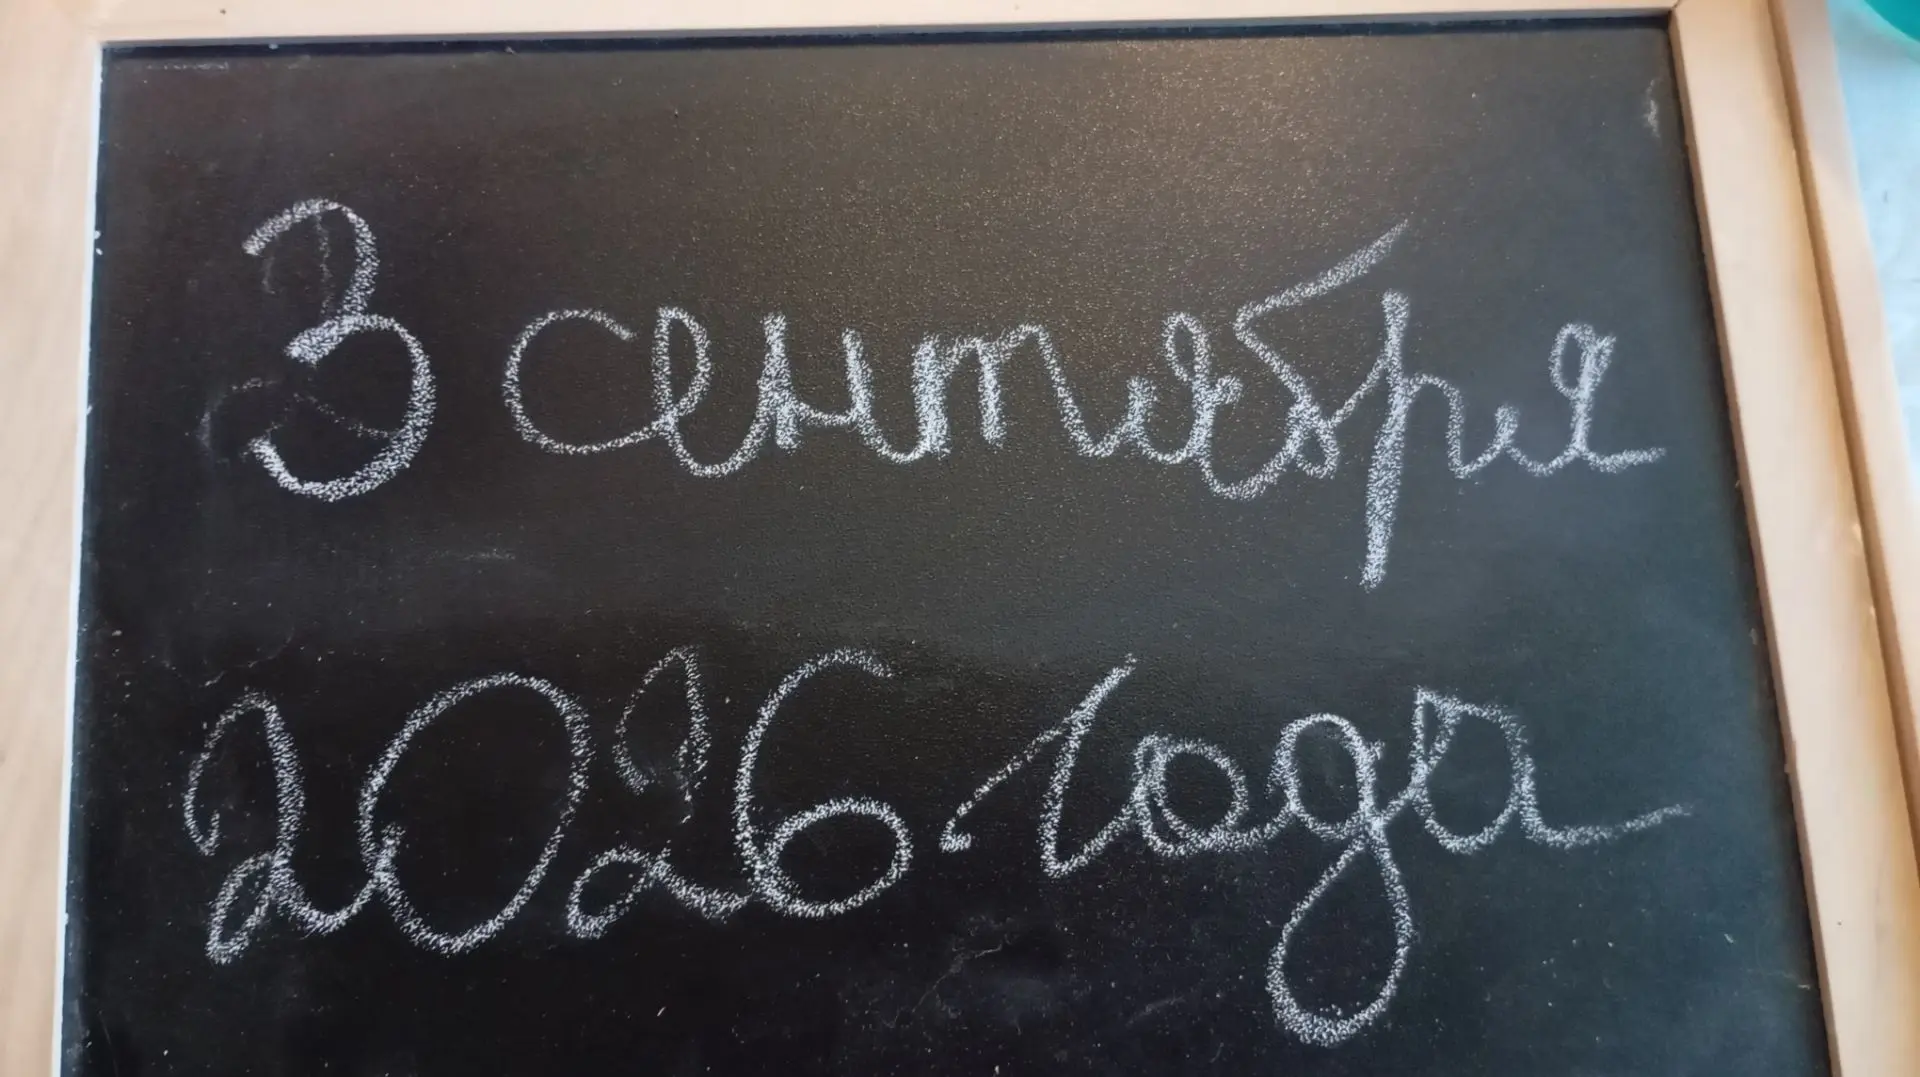 3 сентября
2026 года